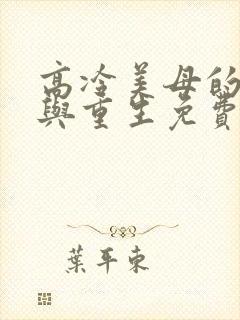 高冷美母的
與重生免費
葉平東